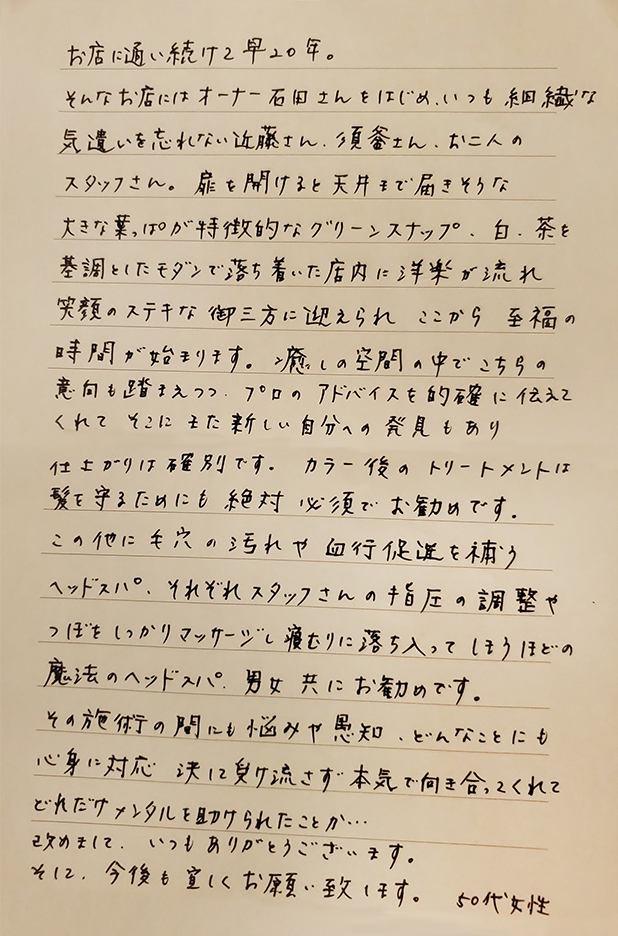 お店に通い続けて早20年。
そんなお店にはオーナー石田さんをはじめ、いつも細繊な
気遣いを忘れない近藤さん、須釜さん、お二人の
スタッフさん。扉を開けると天井まで届きそうな
大きな葉っぱが特徴的なグリーンスナップ、白、茶を
基調としたモダンで落ち着いた店内に洋楽が流れ
笑顔のステキな御三方に迎えられ ここから 至福の
時間が始まります。癒しの空間の中でこちらの
意向も踏まえつつ、プロのアドバイスを的確に伝えて
くれて そこにまた新しい自分への発見もあり
仕上がりは確別です。カラー後のトリートメントは
髪を守るためにも絶対 必須でお勧めです。
この他に毛穴の汚れや血行促進を補う
ヘッドスパ、それぞれスタッフさんの指圧の調整や
つぼをしっかりマッサージし寝むりに落ち入ってしまうほどの
魔法のヘッドスパ、男女共にお勧めです。
その施術の間にも悩みや愚知、どんなことにも
心身に対応 決して負け流さず本気で向き合ってくれて
どれだけメンタルを助けられたことか…
改めまして、いつもありがとうございます。
そして、今後も宜しくお願い致します。 50代女性